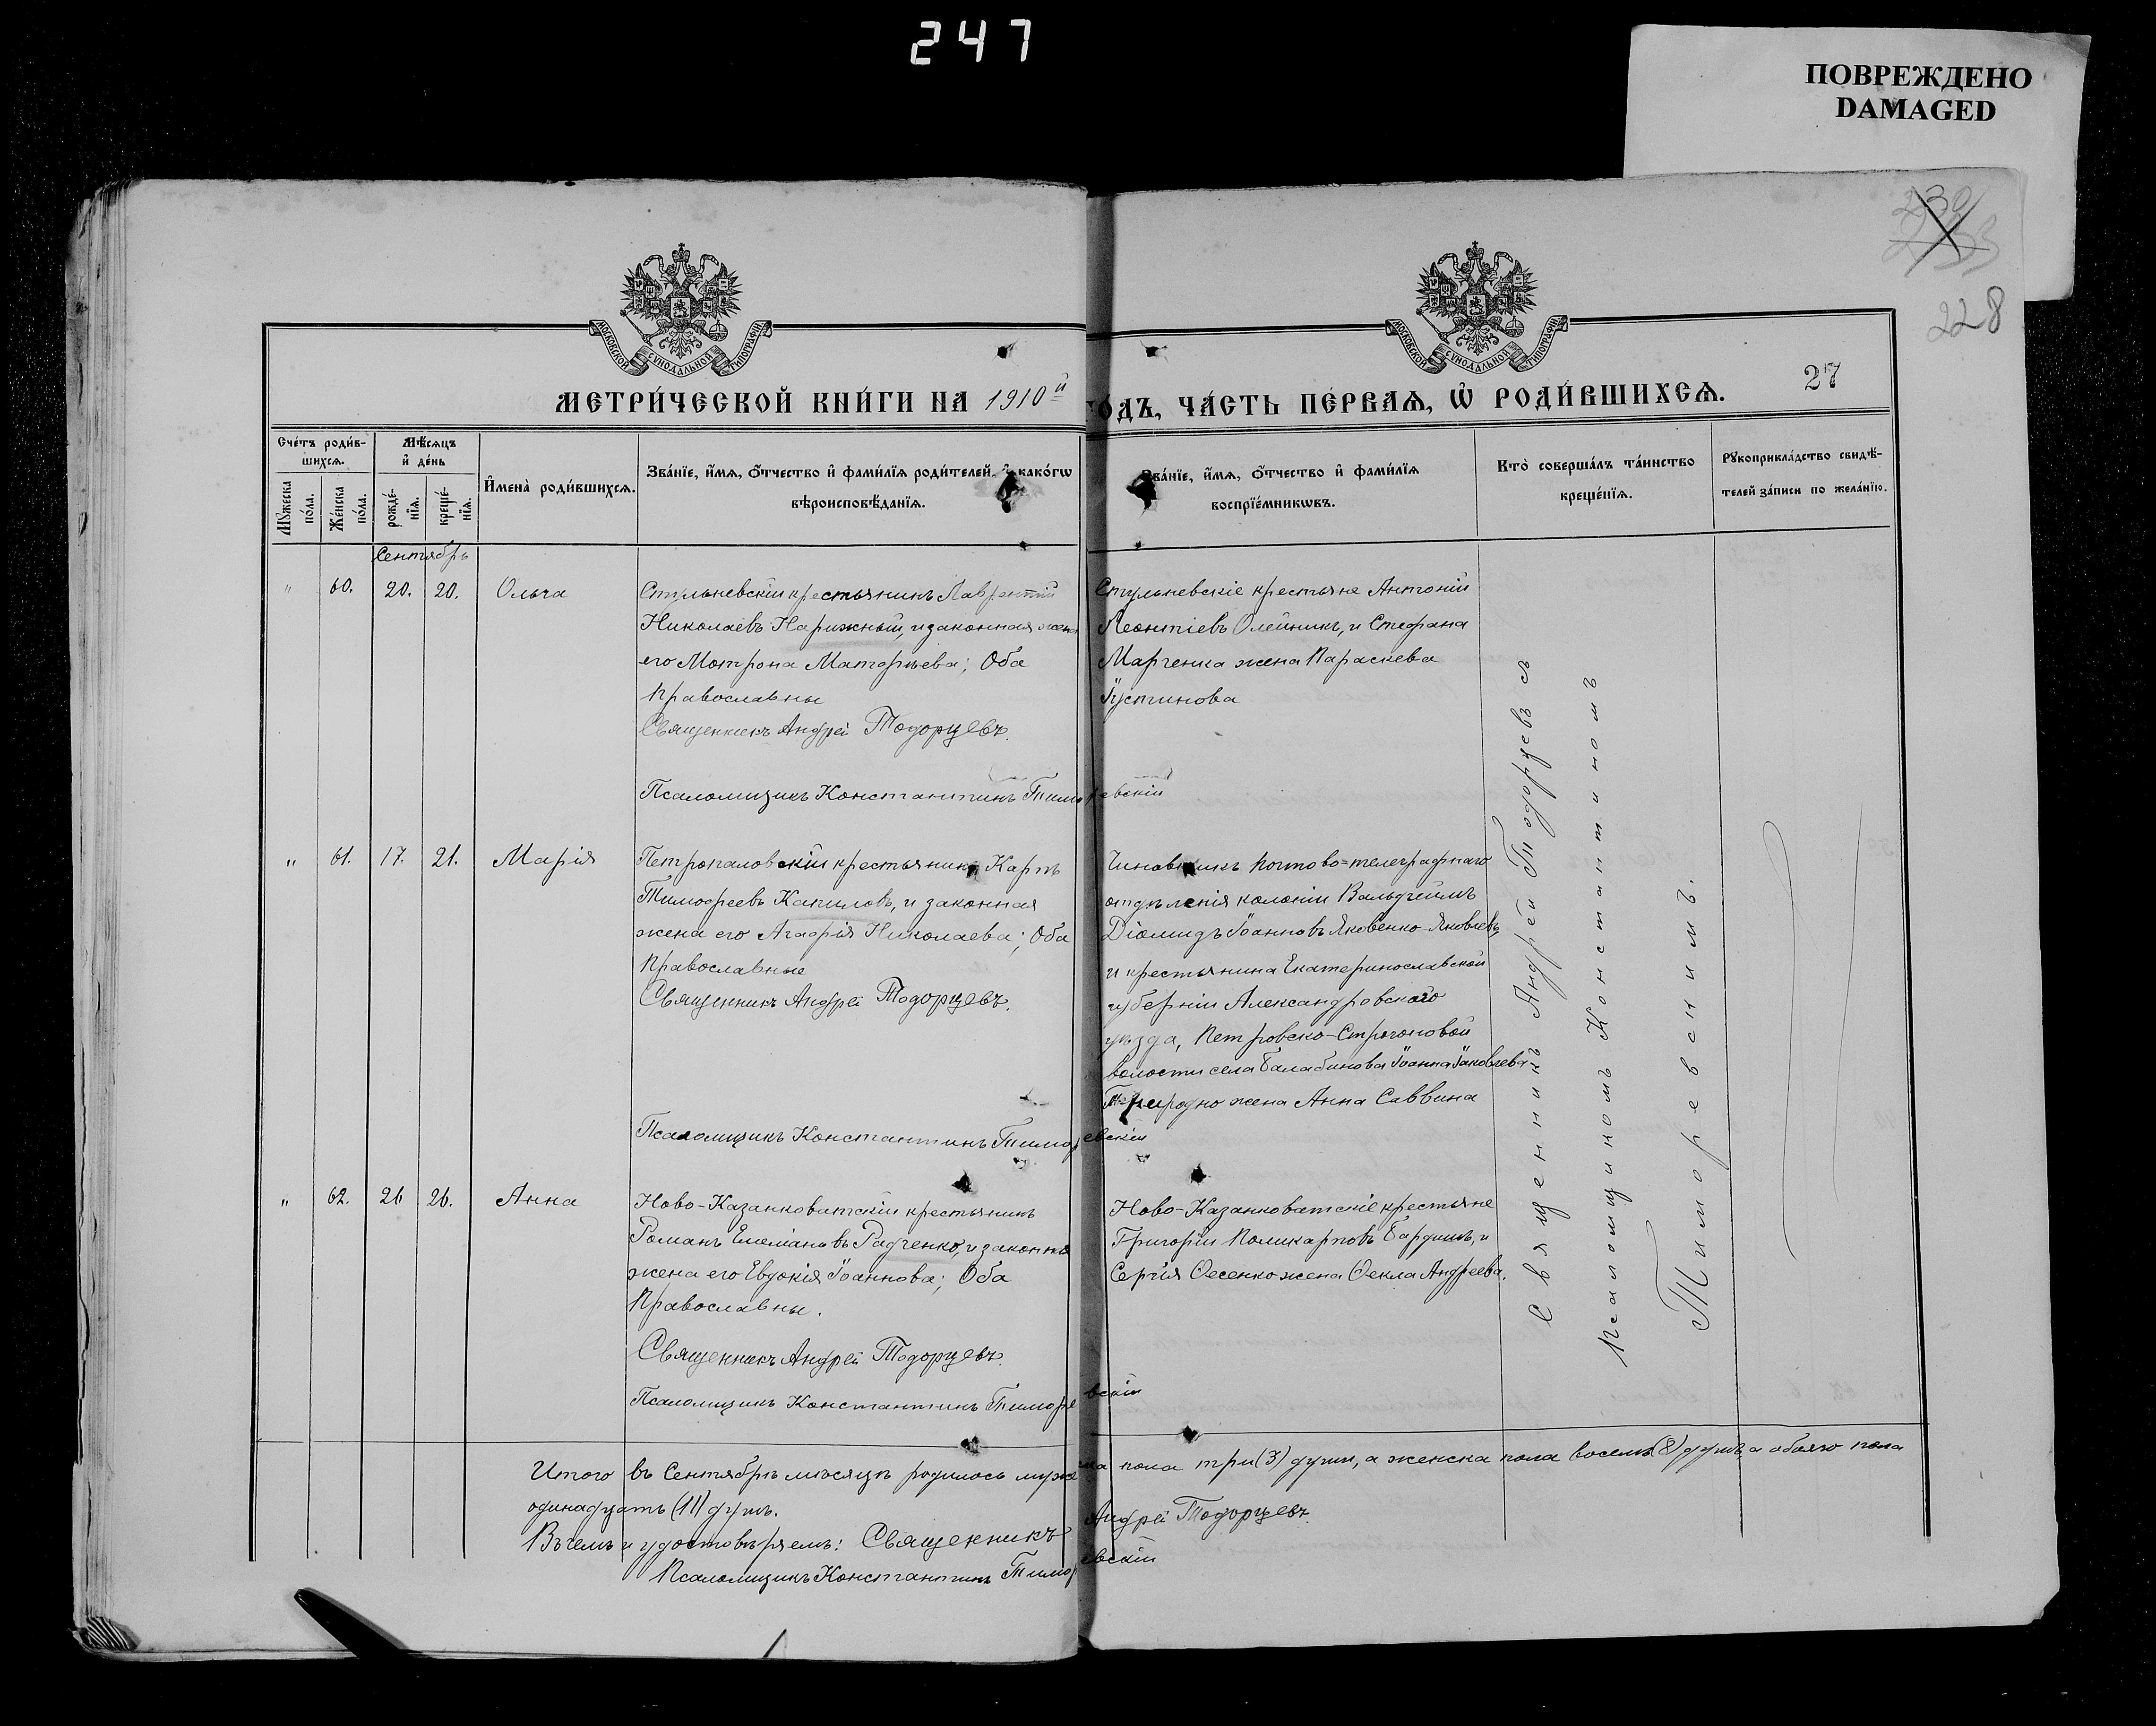 247
ПОВРЕЖДЕНО
DAMAGED
228
27
МОСКОВСКОЙ СУНОДАЛЬНОЙ ТИПОГРАФІИ
МОСКОВСКОЙ СУНОДАЛЬНОЙ ТИПОГРАФІИ
МЕТРИ́ЧЕСКОЙ КНИ́ГИ НА 1910й ГО́ДЪ, ЧА́СТЬ ПЕ́РВАѦ, Ѽ РОДИ́ВШИХСѦ.
Сче́тъ роди́в-
шихсѧ.
Мѣ́сѧцъ
и҆ де́нь
Мꙋ́жеска
по́ла.
Же́нска
по́ла.
рожде́-
нїѧ.
креще́-
нїѧ.
И҆мена̀ роди́вшихсѧ.
Зва́нїе, и҆́мѧ, ѻ҆́тчество и҆ фами́лїѧ роди́телей, и҆ како́гѡ
вѣроисповѣ́данїѧ.
Зва́нїе, и҆́мѧ, ѻ҆́тчество и҆ фами́лїѧ
воспрїе́мникѡвъ.
Кто̀ соверша́лъ та́инство
креще́нїѧ.
Рꙋкоприкла́дство свидѣ́-
телей за́писи по жела́нїю.
Сентябрь
" 60. 20. 20. Ольга
Стульневскій крестьянинъ Лаврентій
Николаевъ Нарижный, и законная жена
его Мотрона Матфѣева; Оба
Православны
Священникъ Андрей Тодорцевъ.
Псаломщикъ Константинъ Тиморевскій
Стульневскіе крестьяне Антоній
Леонтіевъ Олейникъ, и Стефана
Марченка жена Параскева
Іустинова
" 61. 17. 21. Марія
Петропаловскій крестьянинъ Карпъ
Тимофеевъ Капиловъ, и законная
жена его Агафія Николаева; Оба
Православные
Священникъ Андрей Тодорцевъ.
Псаломщикъ Константинъ Тиморевскій
Чиновникъ почтово-телеграфнаго
отдѣленія колоніи Вальдгеймъ
Діомидъ Іоанновъ Яковенко-Яковлевъ,
и крестьянина Екатеринославской
губерніи Александровскаго
уѣзда, Петровско-
волости села Балабинова Іоанна Іаковлева
жена Анна Саввина
" 62. 26 26. Анна
Ново-Казанковатскій крестьянинъ
Романъ Емеліановъ Радченко, и законная
жена его Евдокія Іоаннова; Оба
Православны.
Священникъ Андрей Тодорцевъ.
Псаломщикъ Константинъ Тиморевскій
Ново-Казанковатскіе крестьяне
Григорій Поликарповъ Бардинъ, и
Сергія Ѳесенко жена Ѳекла Андреева.
Священникъ Андрей Тодорцевъ съ
Псаломщикомъ Константиномъ
Тиморевскимъ.
Итого въ Сентябрѣ мѣсяцѣ родилось мужеска пола три (3) души, а женска пола восемь (8) душъ, а обоего пола
одинадцать (11) душъ.
Въ чемъ и удостовѣряемъ: Священникъ Андрей Тодорцевъ.
Псаломщикъ Константинъ Тиморевскій